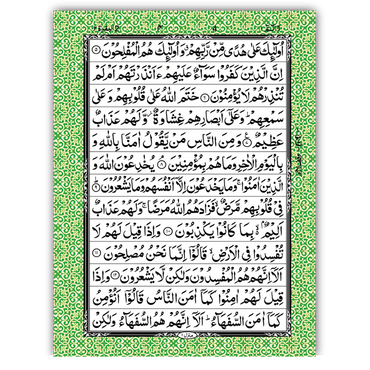 اُولٰٓئِكَ عَلٰى هُدًى مِّنْ رَّبِّهِمْ وَ اُولٰٓئِكَ هُمُ الْمُفْلِحُوْنَ
اِنَّ الَّذِيْنَ كَفَرُوْا سَوَآءٌ عَلَيْهِمْ ءَاَنْذَرْتَهُمْ اَمْ لَمْ
تُنْذِرْهُمْ لَا يُؤْمِنُوْنَ خَتَمَ اللّٰهُ عَلٰى قُلُوْبِهِمْ وَ عَلٰى
سَمْعِهِمْ وَ عَلٰٓى اَبْصَارِهِمْ غِشَاوَةٌ وَّ لَهُمْ عَذَابٌ
عَظِيْمٌ وَ مِنَ النَّاسِ مَنْ يَّقُوْلُ اٰمَنَّا بِاللّٰهِ وَ
بِالْيَوْمِ الْاٰخِرِ وَ مَا هُمْ بِمُؤْمِنِيْنَ يُخٰدِعُوْنَ اللّٰهَ وَ
الَّذِيْنَ اٰمَنُوْا وَ مَا يَخْدَعُوْنَ اِلَّآ اَنْفُسَهُمْ وَ مَا يَشْعُرُوْنَ
فِيْ قُلُوْبِهِمْ مَّرَضٌ فَزَادَهُمُ اللّٰهُ مَرَضًا وَ لَهُمْ عَذَابٌ
اَلِيْمٌۢ بِمَا كَانُوْا يَكْذِبُوْنَ وَ اِذَا قِيْلَ لَهُمْ لَا
تُفْسِدُوْا فِى الْاَرْضِ قَالُوْٓا اِنَّمَا نَحْنُ مُصْلِحُوْنَ
اَلَآ اِنَّهُمْ هُمُ الْمُفْسِدُوْنَ وَ لٰكِنْ لَّا يَشْعُرُوْنَ وَ اِذَا
قِيْلَ لَهُمْ اٰمِنُوْا كَمَآ اٰمَنَ النَّاسُ قَالُوْٓا اَنُؤْمِنُ
كَمَآ اٰمَنَ السُّفَهَآءُ اَلَآ اِنَّهُمْ هُمُ السُّفَهَآءُ وَ لٰكِنْ